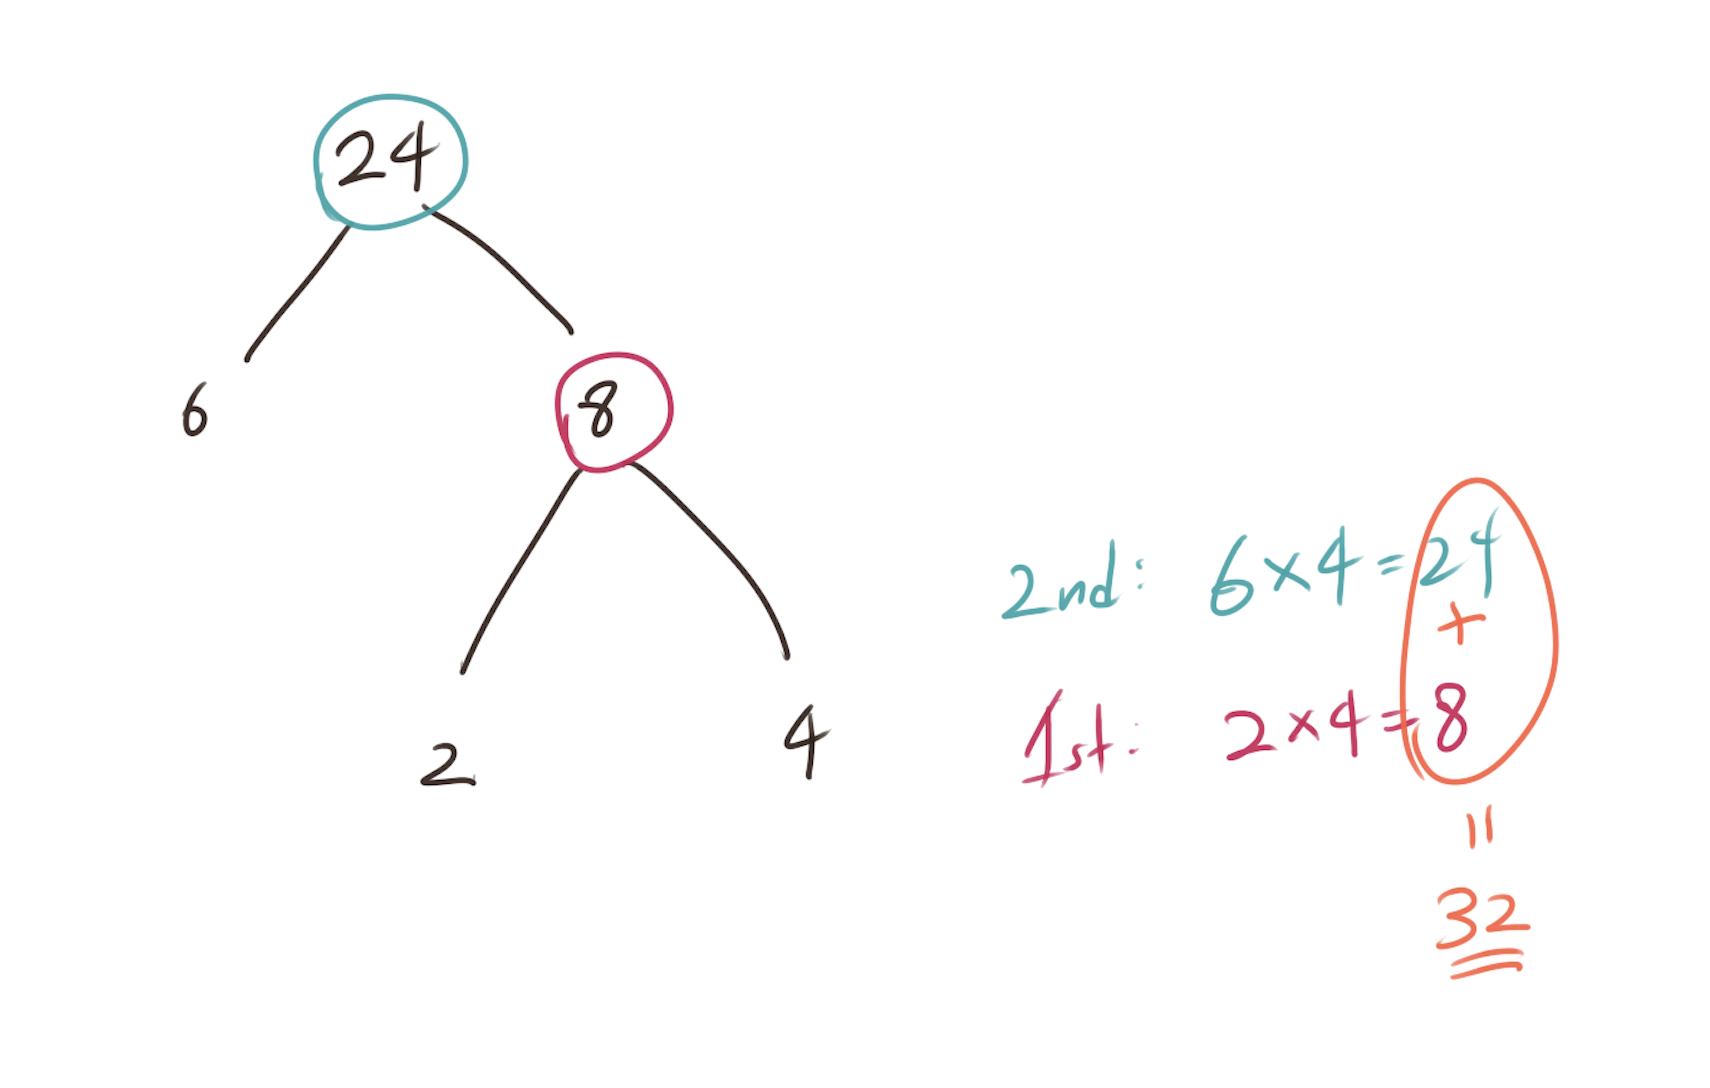 24
6
8
2
4
2nd: 6×4=24
+
1st: 2×4=8
=
32